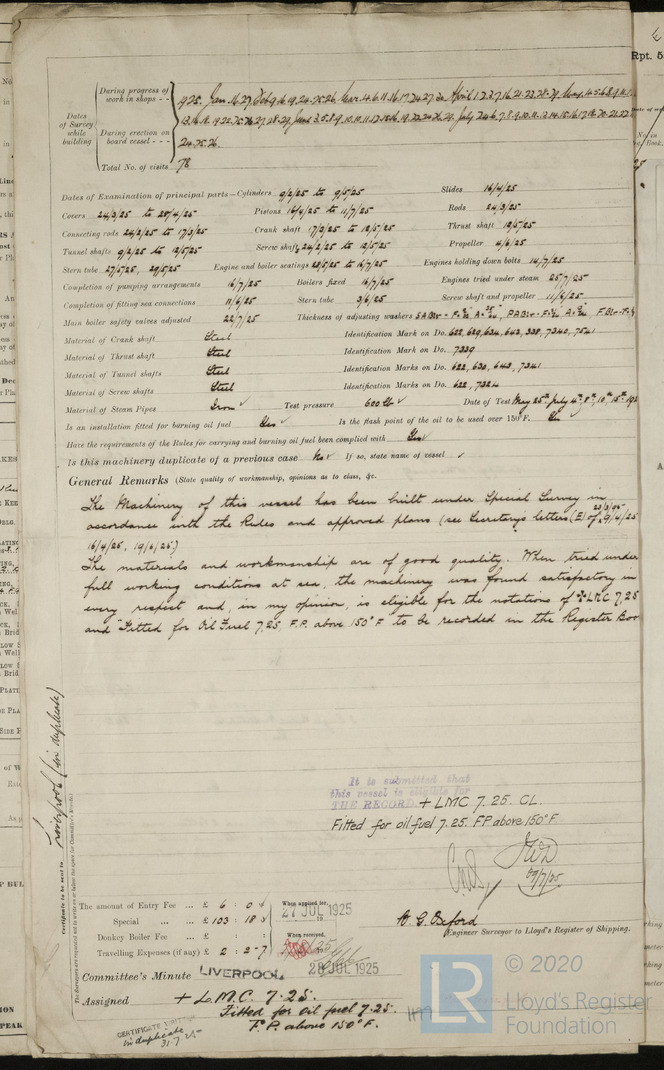 During progress of work in shops - -
1925. Jan. 16. 27. Feb. 9. 16. 19. 24. 25. 26. Mar. 4. 6. 11. 16. 17. 24. 27. 30. April 1. 2. 3. 7. 16. 21. 22. 28. 29. May. 4. 5. 6. 8. 9. 11. 1
Dates of Survey while building
During erection on board vessel - - -
24. 25. 26.
Total No. of visits 78
Dates of Examination of principal parts—Cylinders 9/2/25 to 9/5/25 Slides 16/4/25
Covers 24/3/25 to 28/4/25 Pistons 16/4/25 to 11/7/25 Rods 24/3/25
Connecting rods 24/2/25 to 17/3/25 Crank shaft 17/3/25 to 12/5/25 Thrust shaft 12/5/25
Tunnel shafts 9/2/25 to 12/5/25 Screw shaft 24/2/25 to 12/5/25 Propeller 4/6/25
Stern tube 27/5/25, 29/5/25 Engine and boiler seatings 28/5/25 to 16/7/25 Engines holding down bolts 14/7/25
Completion of pumping arrangements 16/7/25 Boilers fixed 16/7/25 Engines tried under steam 25/7/25
Completion of fitting sea connections 11/6/25 Stern tube 3/6/25 Screw shaft and propeller 11/6/25
Main boiler safety valves adjusted 22/7/25 Thickness of adjusting washers
Material of Crank shaft Steel Identification Mark on Do. 622, 629, 634, 642, 338, 7340, 7341
Material of Thrust shaft Steel Identification Mark on Do. 7339
Material of Tunnel shafts Steel Identification Marks on Do. 622, 630, 643, 7341
Material of Screw shafts Steel Identification Marks on Do. 622, 7324
Material of Steam Pipes Iron ✓ Test pressure 600 lb ✓ Date of Test May 25th July 4th, 8th, 10th, 15th, 192
Is an installation fitted for burning oil fuel Yes ✓ Is the flash point of the oil to be used over 150°F. Yes
Have the requirements of the Rules for carrying and burning oil fuel been complied with Yes ✓
Is this machinery duplicate of a previous case No ✓ If so, state name of vessel ✓
General Remarks (State quality of workmanship, opinions as to class, &c.
The Machinery of this vessel has been built under Special Survey in
accordance with the Rules and approved plans (see Secretary's letters (E) of 23/3/25, 9/4/25
16/4/25, 19/6/25)
The materials and workmanship are of good quality. When tried under
full working conditions at sea, the machinery was found satisfactory in
every respect and, in my opinion, is eligible for the notations of ✠LMC 7.25
and "Fitted for Oil Fuel 7.25. F.P. above 150°F to be recorded in the Register Boo
Liverpool (in duplicate)
Certificate to be sent to
It is submitted that
this vessel is eligible for
THE RECORD. + LMC 7.25. CL.
Fitted for oil fuel 7.25. FP above 150°F.
JWD
29/7/25
The amount of Entry Fee ... £ 6 : 0 When applied for,
27 JUL 1925
Special ... ... £ 103 : 18
Donkey Boiler Fee ... £ : : When received,
Travelling Expenses (if any) £ 2 : 2-7
Engineer Surveyor to Lloyd's Register of Shipping.
Committee's Minute LIVERPOOL 28 JUL 1925
Assigned + L.M.C. 7.25.
Fitted for oil fuel 7.25.
F.P. above 150°F.
CERTIFICATE WRITTEN
in duplicate
31.7.25
LR
© 2020
Lloyd's Register
Foundation
Rpt. 5